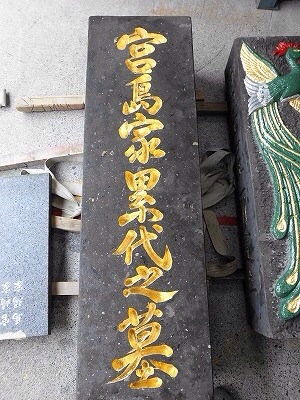 宮島家累代之墓